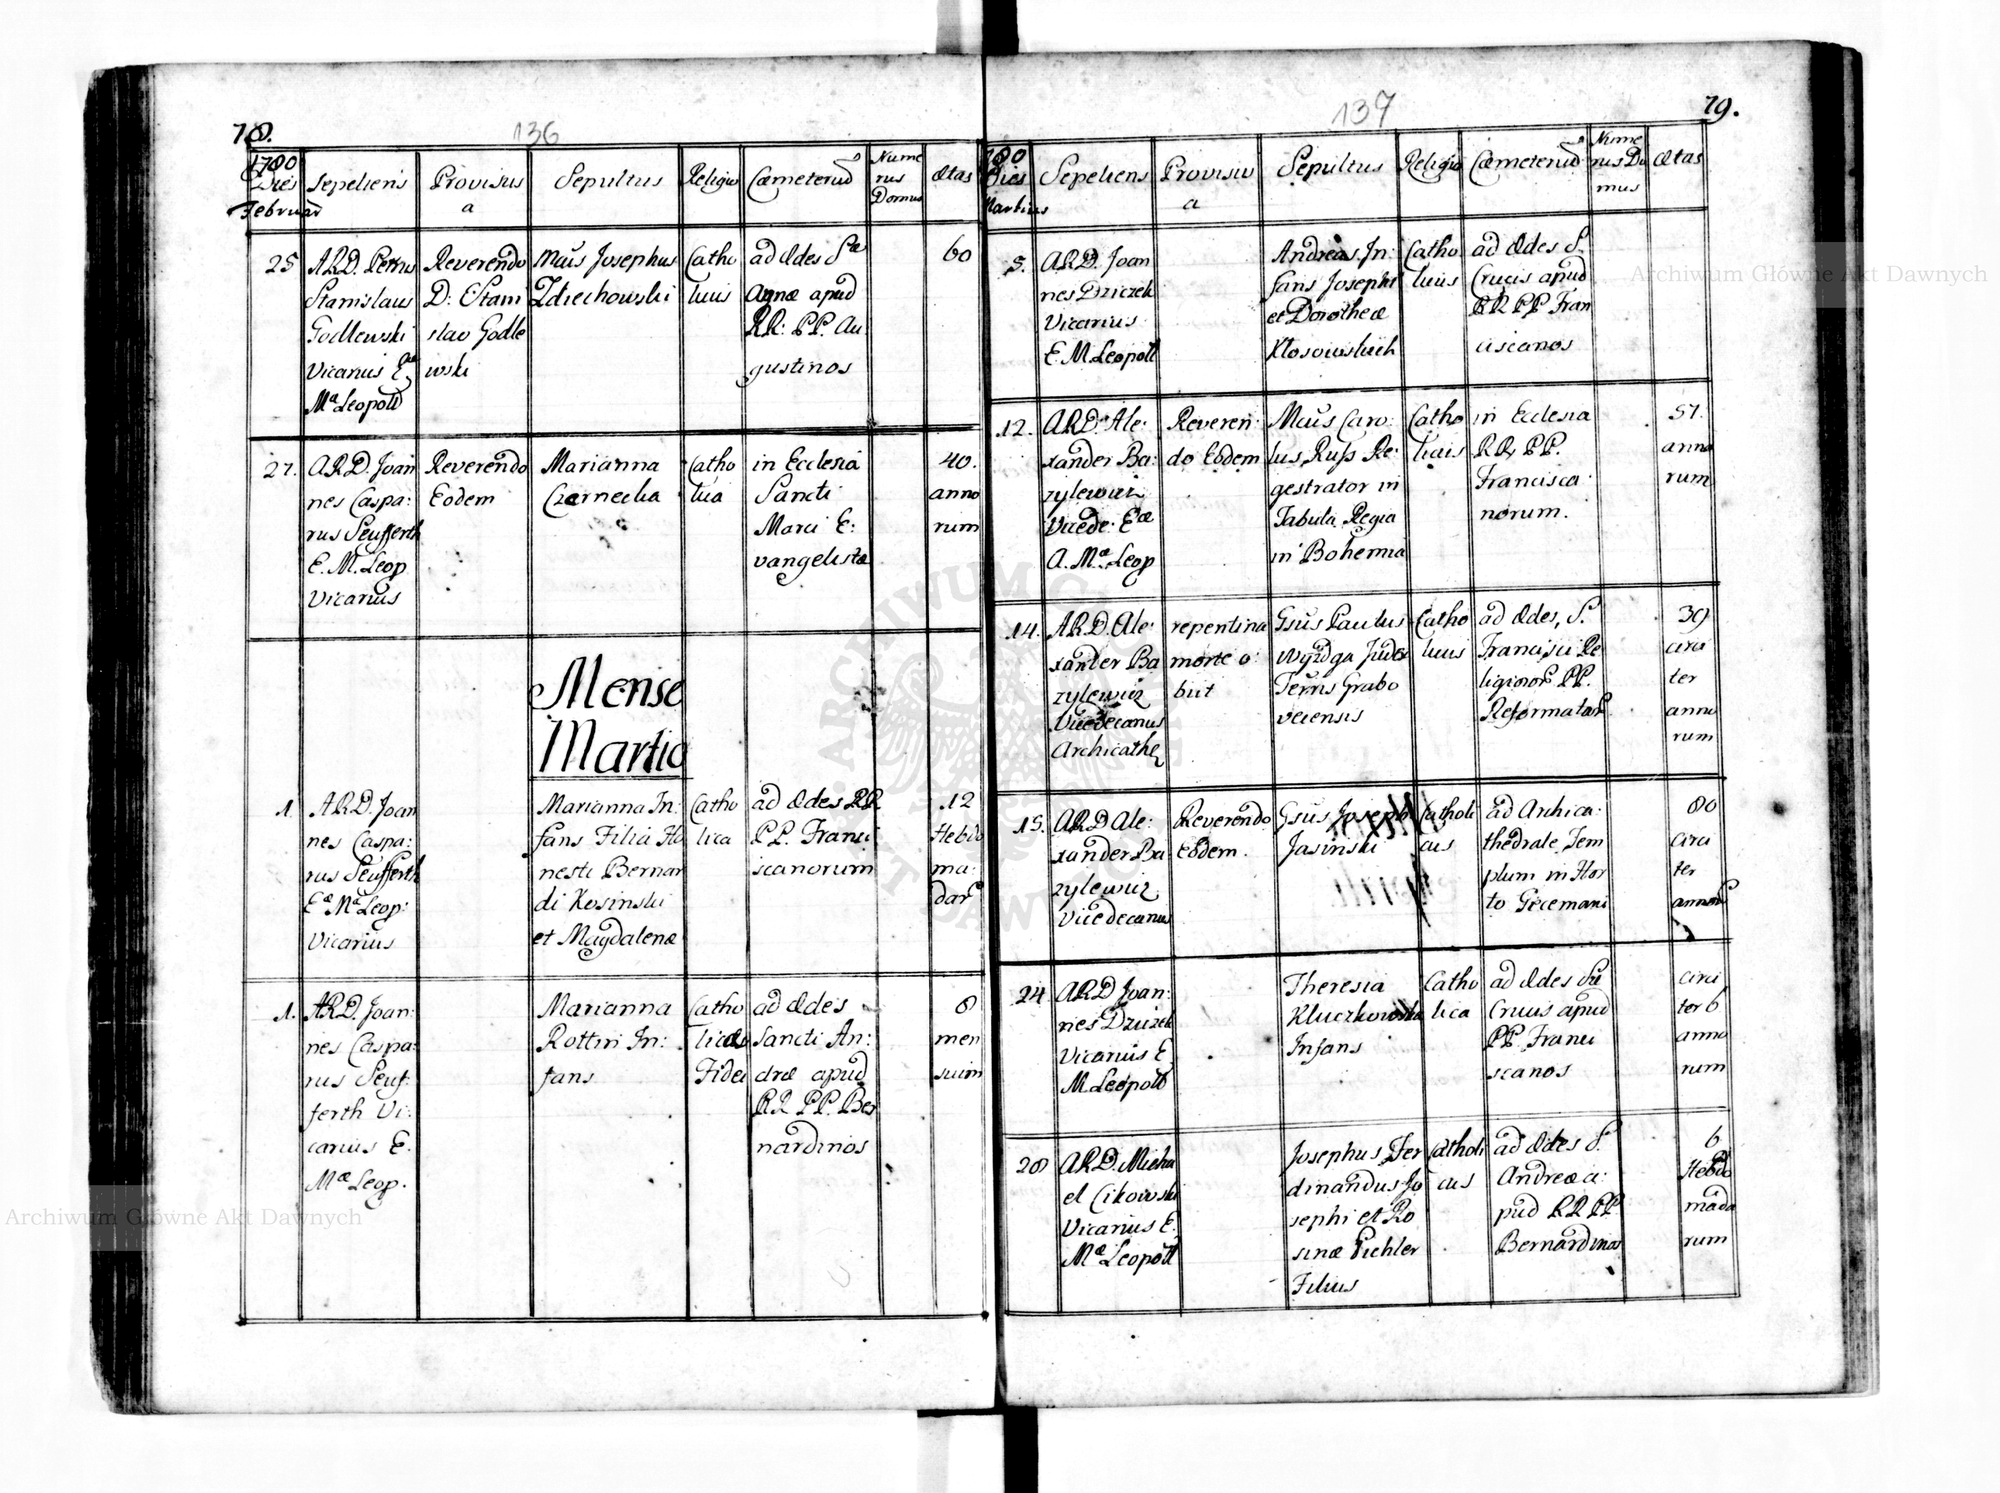 78.
136
1780
Dies
Februar
Sepeliens
Provisus
a
Sepultus
Religio
Cæmeteriu
Nume
rus
Domus
Ætas
25
ARD. Petrus
Stanislaus
Godlewski
Vicarius E
Mæ Leopold
Reverendo
D: Stani
slao Godle
wski
Mgus Josephus
Zdzechowski
Catho
licus
ad Ædes Sæ
Agnæ apud
RR: PP. Au
gustinos
60
27.
ARD. Joan
nes Caspa:
rus Seufferth
E. M. Leop
Vicarius
Reverendo
Eodem
Marianna
Czarnecka
Catho
lica
in Ecclesia
Sancti
Marci E:
vangelistæ
40.
anno
rum
Mense
Martio
1
ARD. Joan
nes Caspa:
rus Seufferth
Eæ Mæ Leop:
Vicarius
Marianna In:
fans Filia Ho
nesti Bernar
di Kosinski
et Magdalenæ
Catho
lica
ad Ædes RR.
PP. Franci
scanorum
12
Hebdo
ma:
dar
1.
ARD. Joan:
nes Caspa:
rus Seuf:
ferth Vi:
carius E.
Mæ Leop.
Marianna
Rottin In:
fans
Catho
licæ
Fidei
ad Ædes
Sancti An:
dræ apud
RR PP. Ber
nardinos
8
men
sium
137
79.
1780
Dies
Martius
Sepeliens
Provisus
a
Sepultus
Religio
Cæmeteriu
Nume
rus Do
mus
Ætas
5.
ARD. Joan
nes Dziczek
Vicarius
E. M. Leopoll
Andreas In:
fans Josephi
et Dorotheæ
Kłosowskich
Catho
licus
ad Ædes S.
Crucis apud
RR PP Fran
ciscanos
12.
ARD. Ale:
xander Ba:
zylewicz
Vicede: Eæ
A. Mæ Leop
Reveren:
do Eodem
Mgus Caro:
lus Russ Re:
gestrator in
Tabula Regia
in Bohemia
Catho
licus
in Ecclesia
RR. PP.
Francisca:
norum.
51.
anno
rum
14.
ARD. Ale:
xander Ba
zylewicz
Vicedecanus
Archicathe
repentina
morte o:
biit
Gsus Paulus
Wyżdga Judex
Terris Grabo
veciensis
Catho
licus
ad Ædes, S.
Francisci Re
ligiosor PP.
Reformator
39
circi
ter
anno
rum
15.
ARD Ale:
xander Ba
zylewicz
Vicedecanus
Reverendo
Eodem.
Gsus Joseph
Jasinski
Catholi
cus
ad Archica:
thedrale Tem
plum in Hor
to Gecemani
80
circi
ter
annor
24
ARD Joan:
nes Dziczek
Vicarius E
M Leopold
Theresia
Kluczkowska
Infans
Catho
lica
ad Ædes Stæ
Crucis apud
PP. Franci
scanos
circi
ter 6
anno
rum
28
ARD. Micha
el Cikowski
Vicarius E.
Mæ Leopoll
Josephus Fer
dinandus Jo
sephi et Ro
sinæ Pichler
Filius
Catholi
cus
ad Ædes S.
Andreæ a:
pud RR PP
Bernardinos
6
Hebdo
mada
rum
Archiwum Główne Akt Dawnych
Archiwum Główne Akt Dawnych